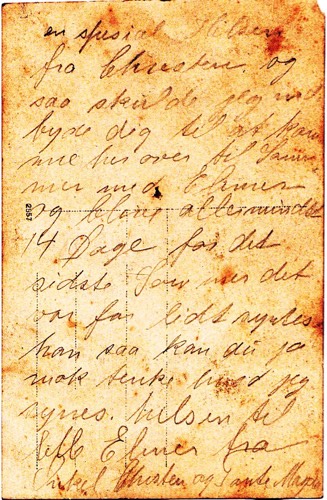 en spesial Hilsen
fra Chresten og
saa skulde jeg ind
byde dig til at kom
me her over til Sum
mer med Elmer
og blive aller mindst
14 Dage for det
sidste Sommer det
var for lidt syntes
han saa kan du ja
nok tenke hvad jeg
synes. hilsen til
Elmer fra
Onkel Chresten og Tante
2157